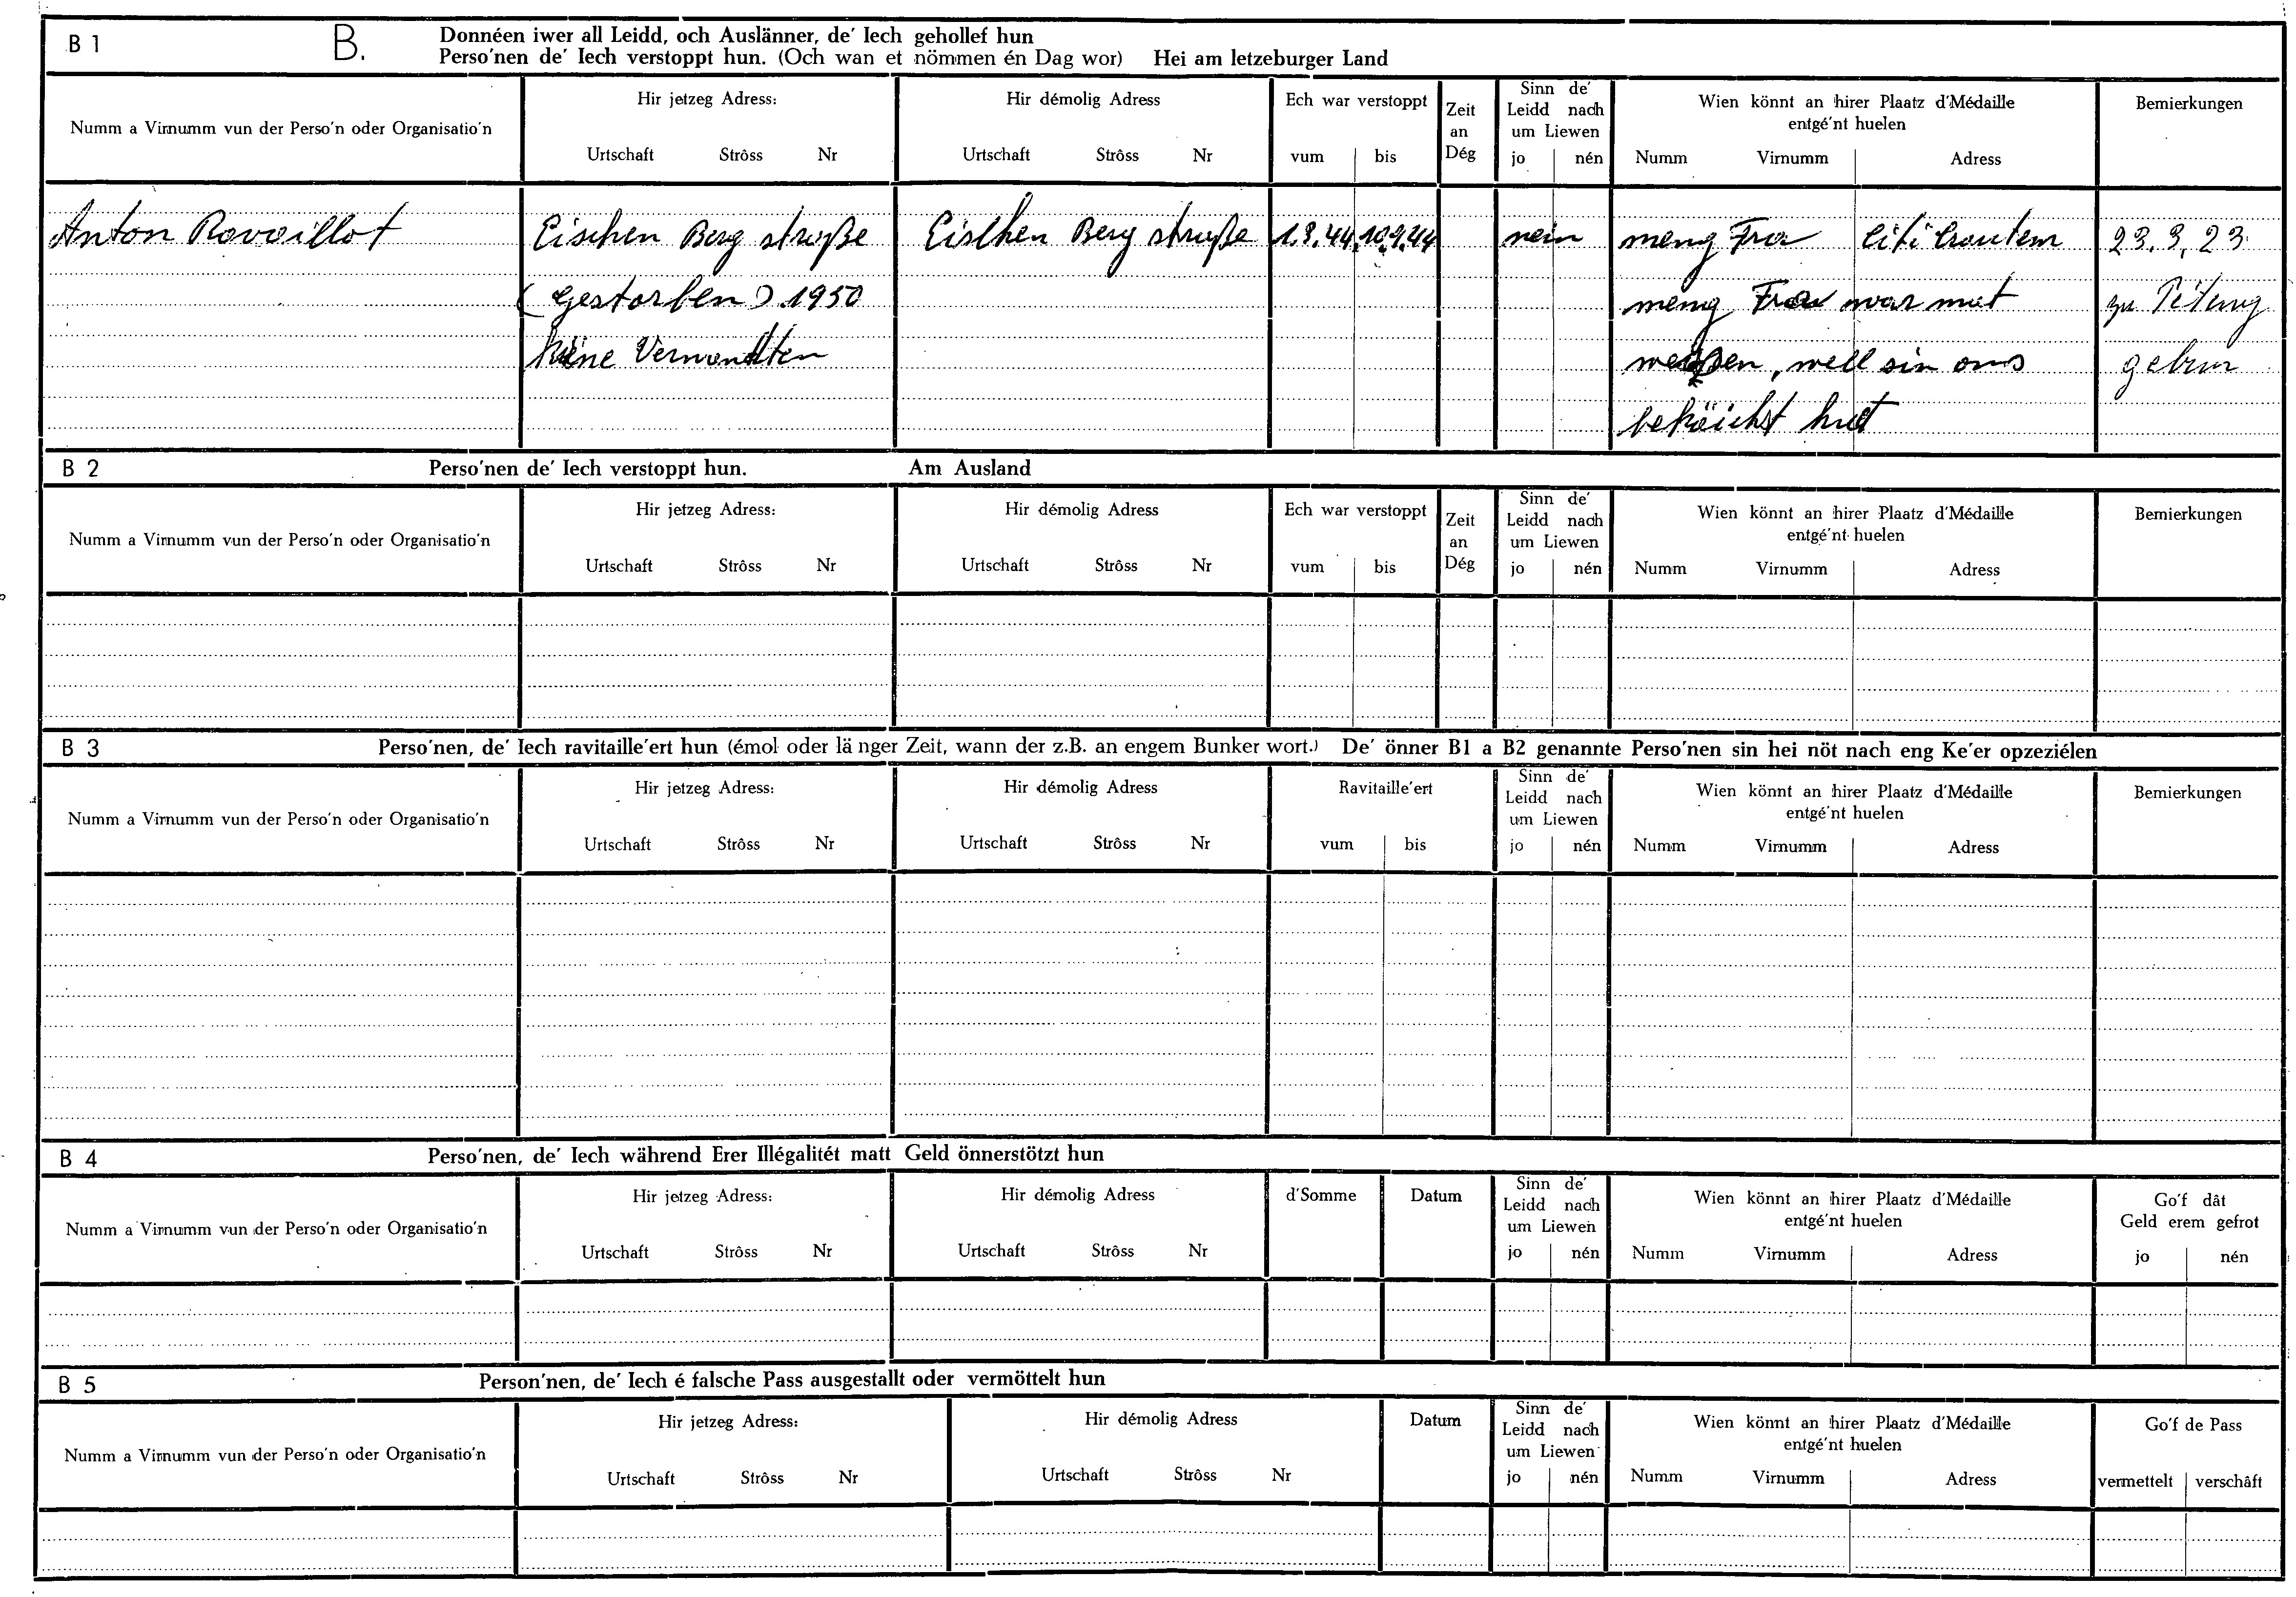 B 1 B. Donnéen iwer all Leidd, och Auslänner, de' Iech gehollef hun
Perso'nen de' Iech verstoppt hun. (Och wan et nömmen én Dag wor) Hei am letzeburger Land
Numm a Virnumm vun der Perso'n oder Organisatio'n
Hir jetzeg Adress:
Urtschaft Strôss Nr
Hir démolig Adress
Urtschaft Strôss Nr
Ech war verstoppt
vum bis
Zeit
an
Dég
Sinn de'
Leidd nach
um Liewen
jo nén
Wien könnt an hirer Plaatz d'Médaille
entgé'nt huelen
Numm Virnumm Adress
Bemierkungen
Anton Eischen Berg straße Eischen Berg straße 1.8.44 10.9.44 nein meng Fra 23.3.23
(Gestorben) 1950 meng Frau war mat zu Péteng
keine Verwandten well sin ons
hat
B 2 Perso'nen de' Iech verstoppt hun. Am Ausland
Numm a Virnumm vun der Perso'n oder Organisatio'n
Hir jetzeg Adress:
Urtschaft Strôss Nr
Hir démolig Adress
Urtschaft Strôss Nr
Ech war verstoppt
vum bis
Zeit
an
Dég
Sinn de'
Leidd nach
um Liewen
jo nén
Wien könnt an hirer Plaatz d'Médaille
entgé'nt huelen
Numm Virnumm Adress
Bemierkungen
B 3 Perso'nen, de' Iech ravitaille'ert hun (émol oder länger Zeit, wann der z.B. an engem Bunker wort.) De' önner B1 a B2 genannte Perso'nen sin hei nöt nach eng Ke'er opzeziélen
Numm a Virnumm vun der Perso'n oder Organisatio'n
Hir jetzeg Adress:
Urtschaft Strôss Nr
Hir démolig Adress
Urtschaft Strôss Nr
Ravitaille'ert
vum bis
Sinn de'
Leidd nach
um Liewen
jo nén
Wien könnt an hirer Plaatz d'Médaille
entgé'nt huelen
Numm Virnumm Adress
Bemierkungen
B 4 Perso'nen, de' Iech während Erer Illégalitét matt Geld önnerstötzt hun
Numm a Virnumm vun der Perso'n oder Organisatio'n
Hir jetzeg Adress:
Urtschaft Strôss Nr
Hir démolig Adress
Urtschaft Strôss Nr
d'Somme
Datum
Sinn de'
Leidd nach
um Liewen
jo nén
Wien könnt an hirer Plaatz d'Médaille
entgé'nt huelen
Numm Virnumm Adress
Go'f dât
Geld erem gefrot
jo nén
B 5 Person'nen, de' Iech é falsche Pass ausgestallt oder vermöttelt hun
Numm a Virnumm vun der Perso'n oder Organisatio'n
Hir jetzeg Adress:
Urtschaft Strôss Nr
Hir démolig Adress
Urtschaft Strôss Nr
Datum
Sinn de'
Leidd nach
um Liewen
jo nén
Wien könnt an hirer Plaatz d'Médaille
entgé'nt huelen
Numm Virnumm Adress
Go'f de Pass
vermettelt verschâft